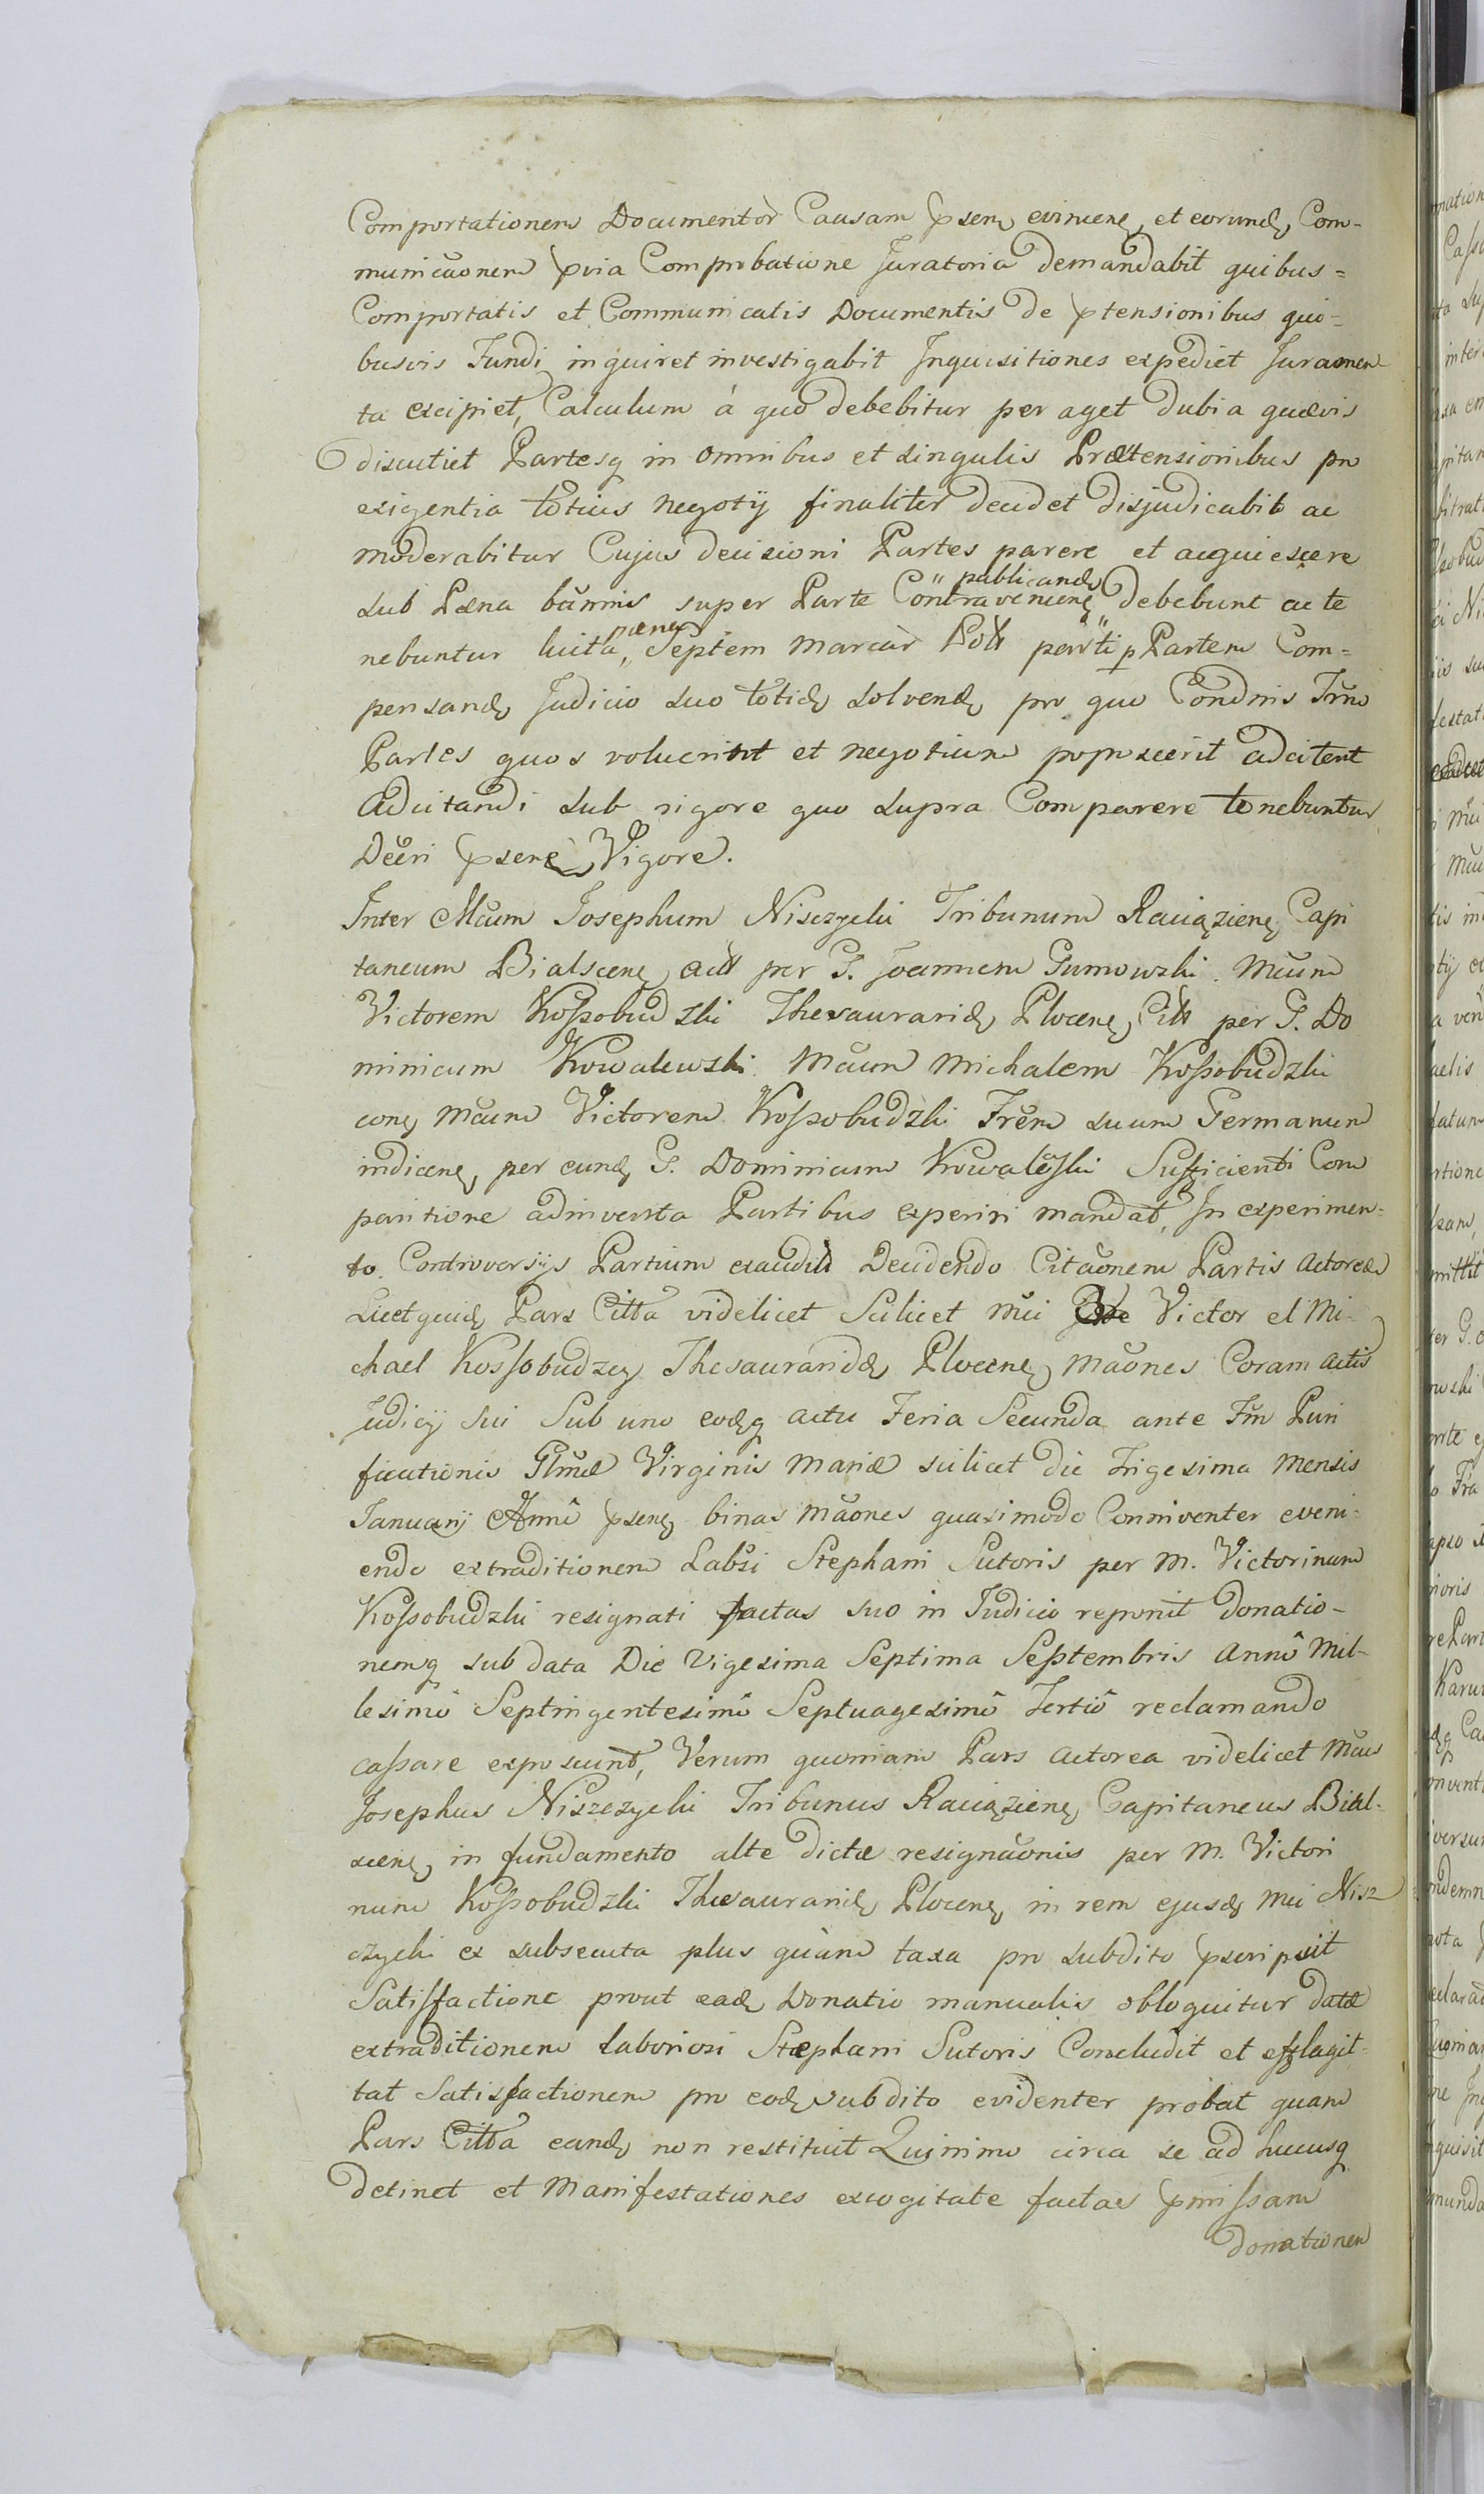 Comportationem Documentor Causam psen evincen, et eorund, Com-
municaonem pvia Comprobatione Juratoria demandabit quibus=
Comportatis et Communicatis Documentis de ptensionibus qui-
busvis Fundi inquiret investigabit Inquisitiones expediet Juramen
ta excipiet, Calculum à quo debebitur per aget dubia quævis
discutiet Partesq in omnibus et singulis Prætensionibus pro
exigentia totius negotij finaliter decidet disjudicabit ac
moderabitur Cujus decisioni Partes parere et acquiescere
publicand
sub Pæna bannis super Parte Contravenien debebunt ac te
pæna
nebuntur Septem marcar Poll parti p Partem Com=
pensand Judicio suo totid solvend pro quo Condnis Trno
Partes quos voluerint et negotium poposcerit adcitent
Adcitandi sub rigore quo supra Comparere tenebuntur
Decri psent Vigore.
Inter Mcum Josephum Nisczycki Tribunum Raciążien, Capi
taneum Bialscen, act per G. Joannem Gumowski. Mcum
Victorem Koszobudzki Thesaurarid, Plocen, Citt per G. Do
minicum Kowalewski Mcum Michalem Koszobudzki
con, Mcum Victorem Koszobudzki Frem suum Germanum
indicen, per eund, G. Dominicum Kowalewski Sufficienti Com
paritione adinventa Partibus experiri mandat, In experimen=
to Controversijs Partium exaudit Decidendo Citaonem Partis Actoreæ
Licet quid, Pars Citta videlicet Scilicet Mci Victor et Mi-
chael Kossobudzcy Thesaurarid, Plocen, Maones Coram Actis
Judicij sui Sub uno eodq actu Feria Secunda ante Fm Puri
ficationis Glmæ Virginis Mariæ scilicet die trigesima mensis
Januarij Anni psen, binas Maones quasimodo Conniventer eveni-
endo extraditionem Labsi Stephani Sutoris per M. Victorinum
Koszobudzki resignati factas suo in Judicio reponit donatio-
nemq sub data Die vigesima Septima Septembris Annô Mil-
lesimô Septingentesimô Septuagesimô Tertiô reclamando
cassare exposcunt, Verum quoniam Pars Actorea videlicet Mcus
Josephus Niszczycki Tribunus Raciążien, Capitaneus Bial-
scen, in fundamento alte dictæ resignaonis per M. Victori
num Koszobudzki Thesaurarid, Plocen, in rem ejusd, Mci Nisz
czycki ex subsecuta plus quàm taxa pro subdito pscripsit
Satisfactione prout ead, Donatio manualis obloquitur datæ
extraditionem Laboriosi Stephani Sutoris Concludit et efflagit-
tat Satisfactionem pro eod, subdito evidenter probat quam
Pars Citta eand, non restituit Quinimo circa se ad hucusq
detinet et Manifestationes excogitate factas pmissam
donationem